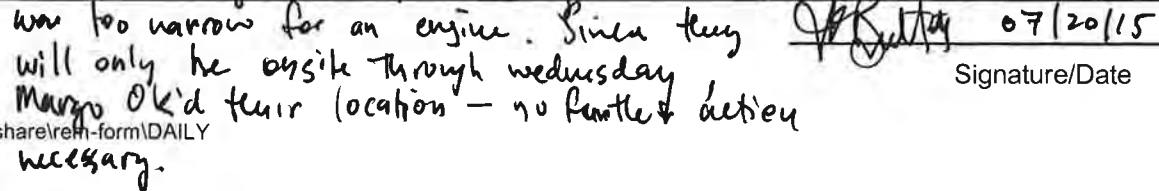 was too narrow for an engine. Since they
will only be onsite through wednesday
Margo Ok'd their location – no further action
necessary.
07/20/15
Signature/Date
share\rem-form\DAILY